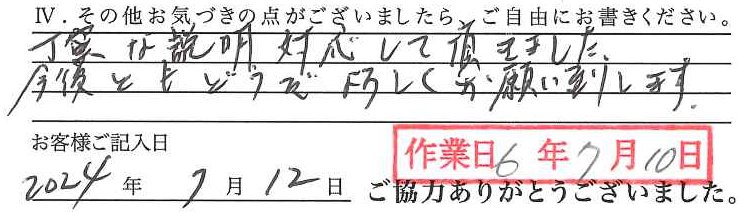 Ⅳ．その他お気づきの点がございましたら、ご自由にお書きください。
丁寧な説明対応して頂きました、
今後ともどうぞよろしくお願い致します。
お客様ご記入日
作業日6年7月10日
2024年7月12日
ご協力ありがとうございました。